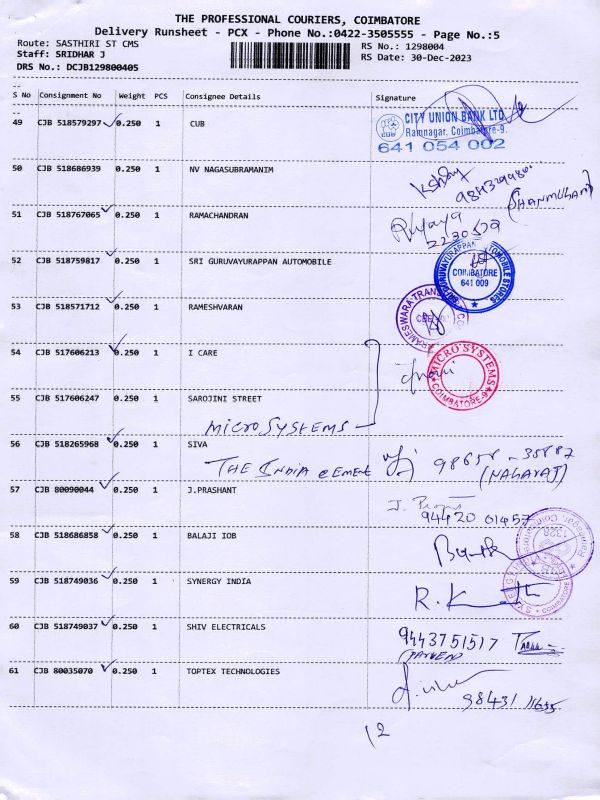 THE PROFESSIONAL COURIERS, COIMBATORE
Delivery Runsheet - PCX - Phone No.:0422-3505555 - Page No.:5
Route: SASTHIRI ST CMS RS No.: 1298004
Staff: SRIDHAR J RS Date: 30-Dec-2023
DRS No.: DCJB129800405
S No Consignment No Weight PCS Consignee Details Signature
49 CJB 518579297 0.250 1 CUB
CITY UNION BANK LTD
Ramnagar, Coimbatore-9.
641 054 002
50 CJB 518686939 0.250 1 NV NAGASUBRAMANIM
(SHANMUGAM)
51 CJB 518767065 0.250 1 RAMACHANDRAN
52 CJB 518759817 0.250 1 SRI GURUVAYURAPPAN AUTOMOBILE
SRI GURUVAYURAPPAN AUTOMOBILE STORES
COIMBATORE
641 009
53 CJB 518571712 0.250 1 RAMESHVARAN
54 CJB 517606213 0.250 1 I CARE
MICRO SYSTEMS
COIMBATORE-9
55 CJB 517606247 0.250 1 SAROJINI STREET
MICROSYSTEMS
56 CJB 518265968 0.250 1 SIVA
THE INDIA CEMENT 98658-35887
(NAGARAJ)
57 CJB 80090044 0.250 1 J.PRASHANT
94420 01457
58 CJB 518686858 0.250 1 BALAJI IOB
59 CJB 518749036 0.250 1 SYNERGY INDIA
60 CJB 518749037 0.250 1 SHIV ELECTRICALS
9443751517
61 CJB 80035070 0.250 1 TOPTEX TECHNOLOGIES
98431 11655
12